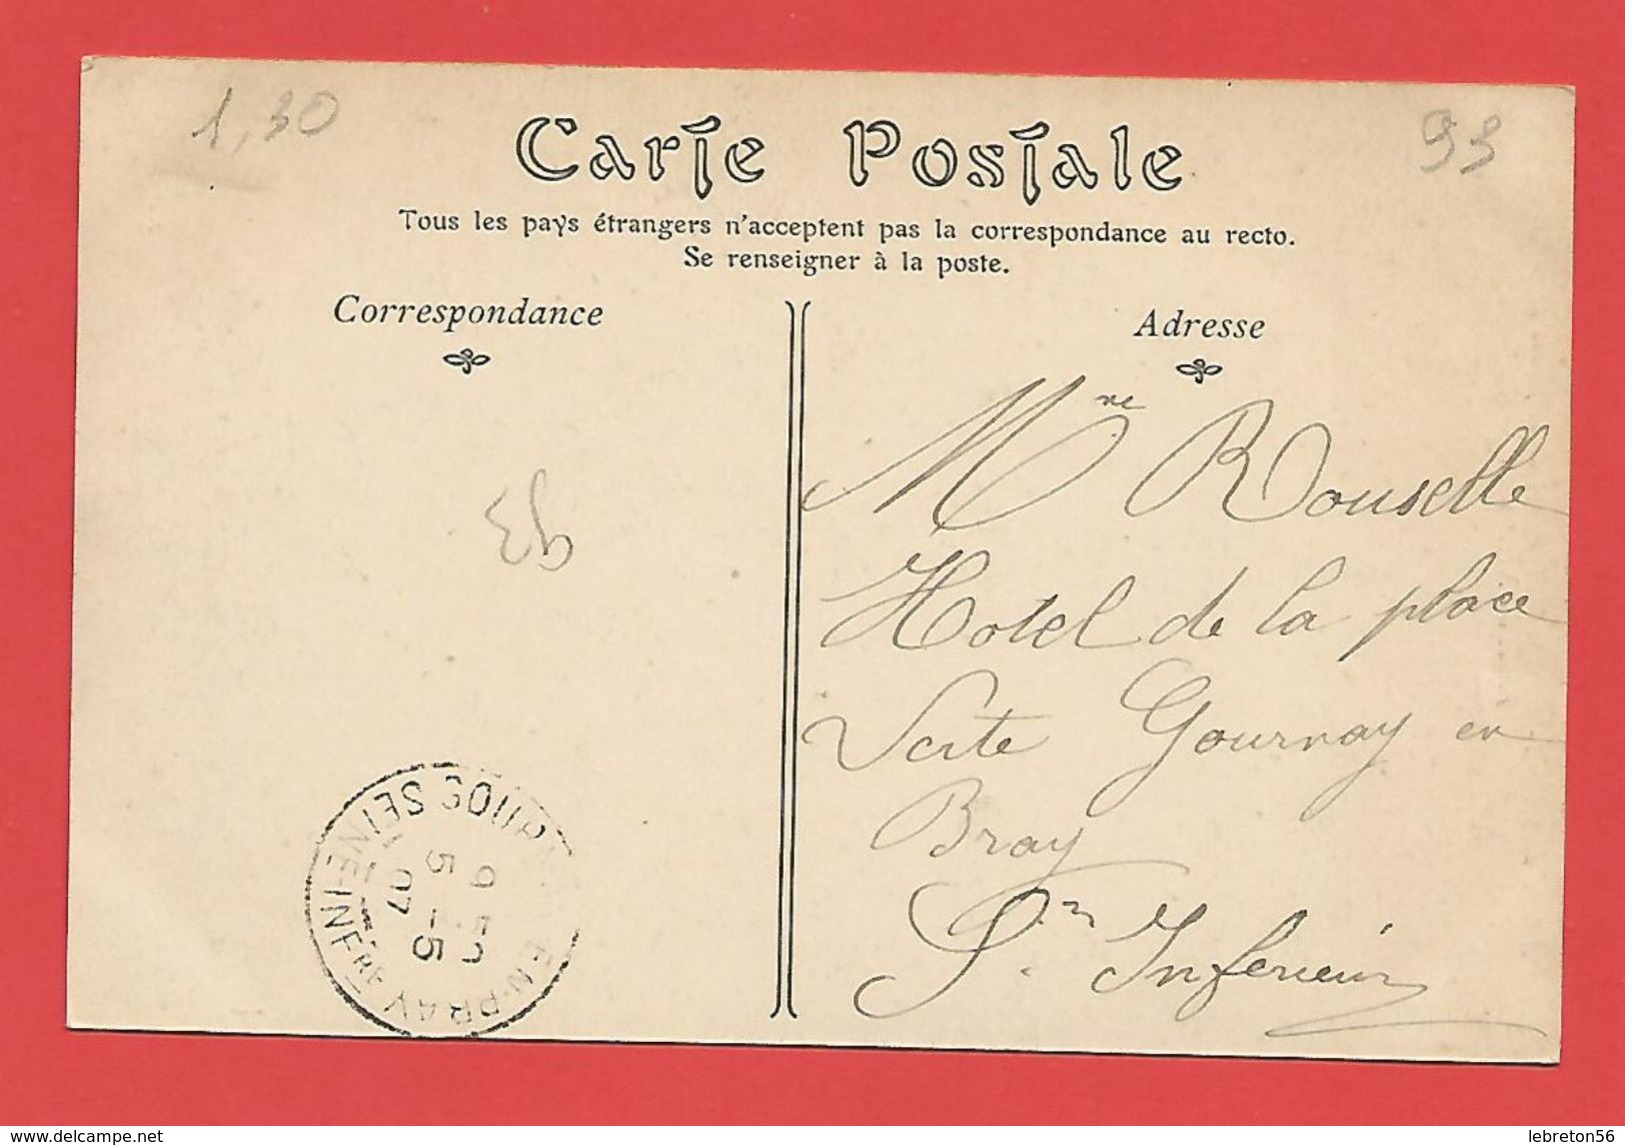 1,30
93
Carte Postale
Tous les pays étrangers n'acceptent pas la correspondance au recto.
Se renseigner à la poste.
Correspondance
Adresse
Mme Rouselle
Hotel de la place
Verte Gournay en
Bray
Sne Inferieur
93
GOURNAY-EN-BRAY
SEINE-INFRE
9 50
5 -5
07
lebreton56